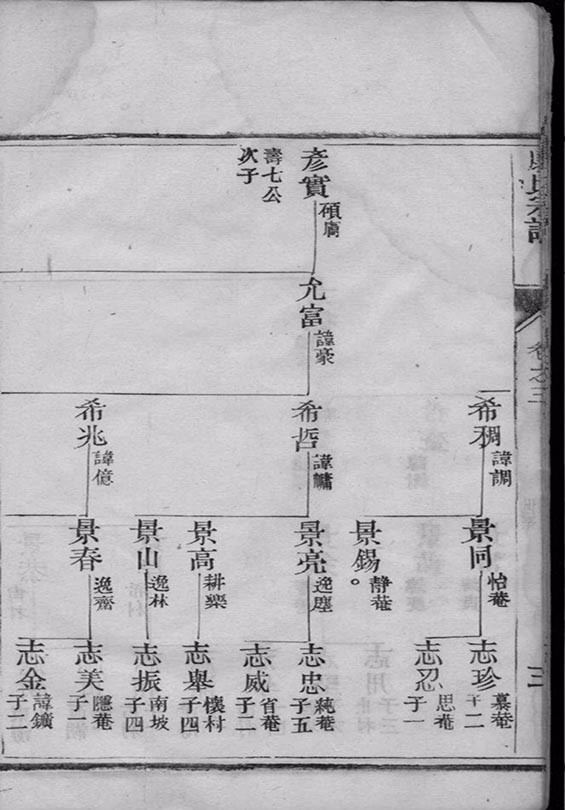 宗譜
卷之三
三
彥實 碩膚
壽七公
次子
允富 諱豪
希稠 諱調
希哲 諱鏞
希兆 諱億
景同 怡菴
景錫 靜菴
景亮 逸塵
景高 耕樂
景山 逸林
景春 逸齋
志珍 慕菴 子二
志忍 思菴 子一
志忠 純菴 子五
志威 省菴 子一
志舉 懷村 子四
志振 南坡 子四
志美 隱菴 子一
志金 諱鑛 子二